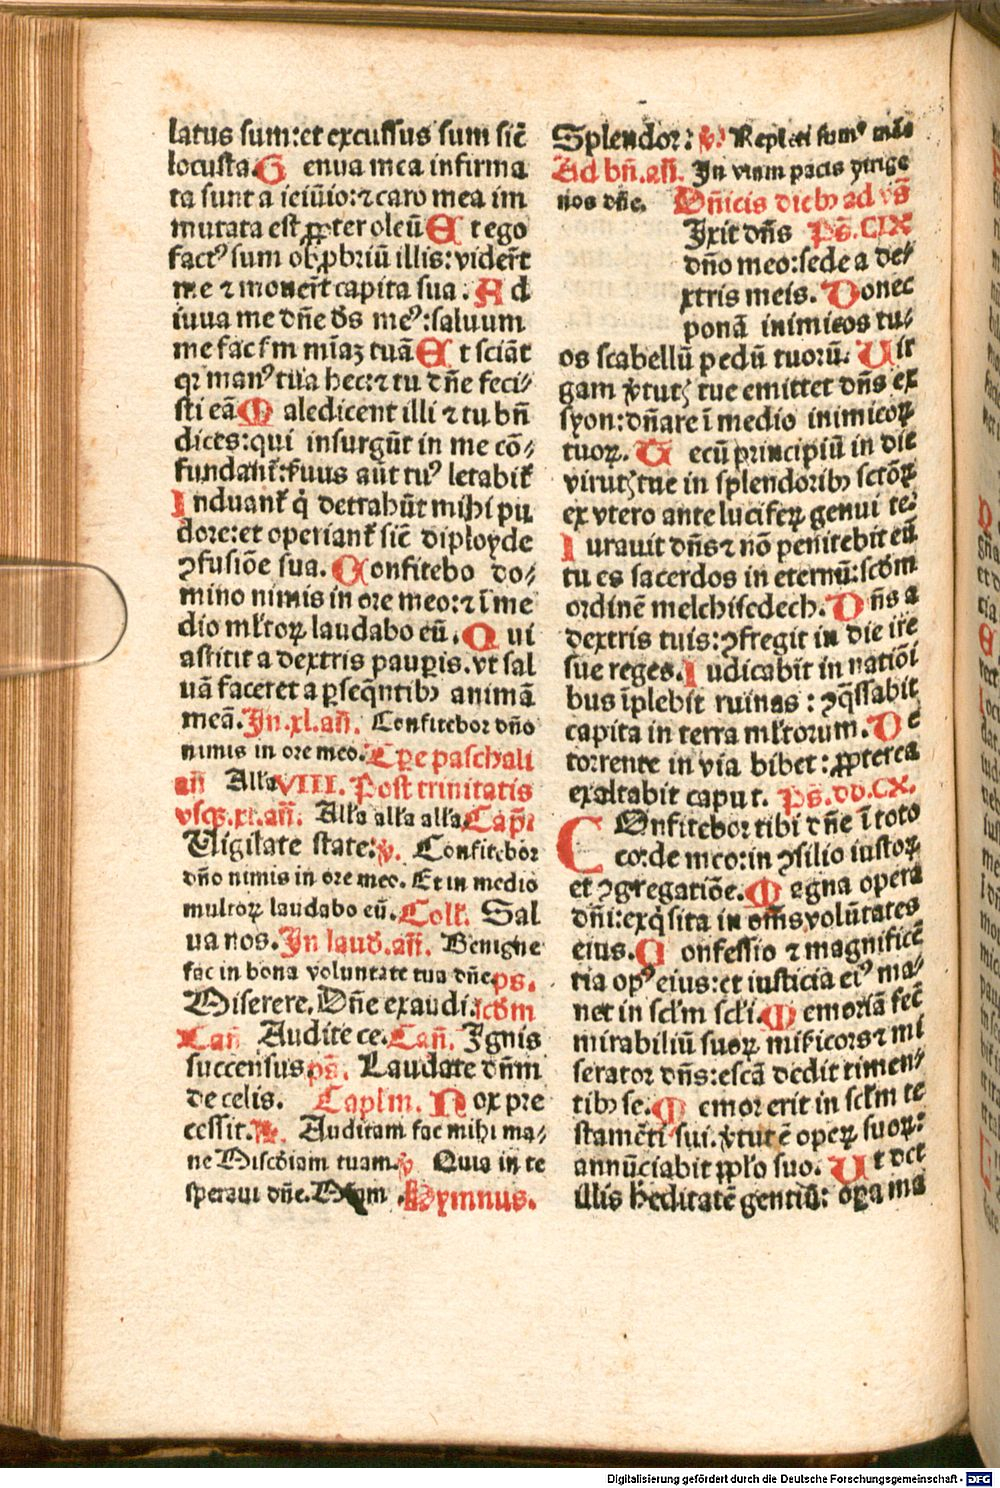 latus sum:et excussus sum sic̄
locusta.G enua mea infirma
ta sunt a ieiūio:⁊ caro mea im
mutata est ꝓpter oleū E t ego
factꝰ sum obꝓbriū illis:vidert̄
me ⁊ mouert̄ capita sua. A d
iuua me dn̄e ds̄ meꝰ:saluum
me fac sm̄ mīaꝫ tuā E t sciāt
qꝛ manꝰ tua hec:⁊ tu dn̄e feci⸗
sti eā M aledicent illi ⁊ tu bn̄
dices:qui insurgūt in me cō⸗
fundant᷑:s̓uus aūt tuꝰ letabit᷑
I nduant᷑ q̇ detrahūt mihi pu
dore:et operiant᷑ sic̄ diployde
ꝯfusiōe sua. C onfitebo do⸗
mino nimis in ore meo:⁊ ī me
dio ml̓toꝝ laudabo eū. Q ui
astitit a dextris pauꝑis.vt sal
uā faceret a ꝑseq̄ntibꝫ animā
meā. In.xl.an̄. Confitebor dn̄o
nimis in ore meo. Tꝑe paschali
an̄ All̓a VIII. Post trinitatis
vsqꝫ.xl.an̄. All̓a all̓a all̓a. Cap̄.
Vigilate state: ꝟ. Confitebor
dn̄o nimis in ore meo. Et in medio
multoꝝ laudabo eū. Coll̓. Sal
ua nos. In laud̓.an̄. Benigne
fac in bona voluntate tua dn̄e ps.
Miserere, Dn̄e exaudi. sc̄dm
Can̄ Audite ce. Can̄. Ignis
succensus ps̄. Laudate dn̄m
de celis. Capl̓m. N ox pre
cessit. ℟. Auditam fac mihi ma⸗
ne Mis̄c̄diam tuam ꝟ Quia in te
speraui dn̄e. Hymnus.
Splendor: ꝟ. Repleti sumꝰ
Ad bn̄.an̄. In viam pacis dirige
nos dn̄e. Dn̄icis diebꝫ ad vs̄
Ixit dn̄s Ps̄.CIX
dn̄o meo:sede a de⸗
xtris meis. D onec
ponā inimicos tu⸗
os scabellū pedū tuorū. V ir
gam ꝟtutꝭ tue emittet dn̄s ex
syon:dn̄are ī medio inimicoꝝ
tuoꝝ. T ecū principiū in die
virtutꝭ tue in splendoribꝫ sctōꝝ
ex vtero ante luciferꝝ genui te
I urauit dn̄s ⁊ nō penitebit eū
tu es sacerdos in eternū:sc̄dm
ordinē melchisedech. D n̄s a
dextris tuis:ꝯfregit in die ire
sue reges. I udicabit in natiōi
bus īplebit ruinas : ꝯq̄ssabit
capita in terra ml̓torum. D e
torrente in via bibet : ꝓpterea
exaltabit caput. Ps̄.dd.CX.
C Onfitebor tibi dn̄e ī toto
corde meo:in ꝯsilio iustoꝝ
et ꝯgregatiōe. M agna opera
dn̄i:exq̇sita in om̄s volūtates
eius. C onfessio ⁊ magnificē
tia opꝰ eius:et iusticia eiꝰ ma⸗
net in scl̓m scl̓i. M emoriā fec̄
mirabiliū suoꝝ mis̓icors ⁊ mi
serator dn̄s:escā dedit timen⸗
tibꝫ se. M emor erit in scl̓m te
stamēti sui. ꝟtutē operꝝ suoꝝ:
annūciabit ppl̓o suo. V t det
illis h̓editatē gentiū: oꝑa ma
Digitalisierung gefördert durch die Deutsche Forschungsgemeinschaft - DFG